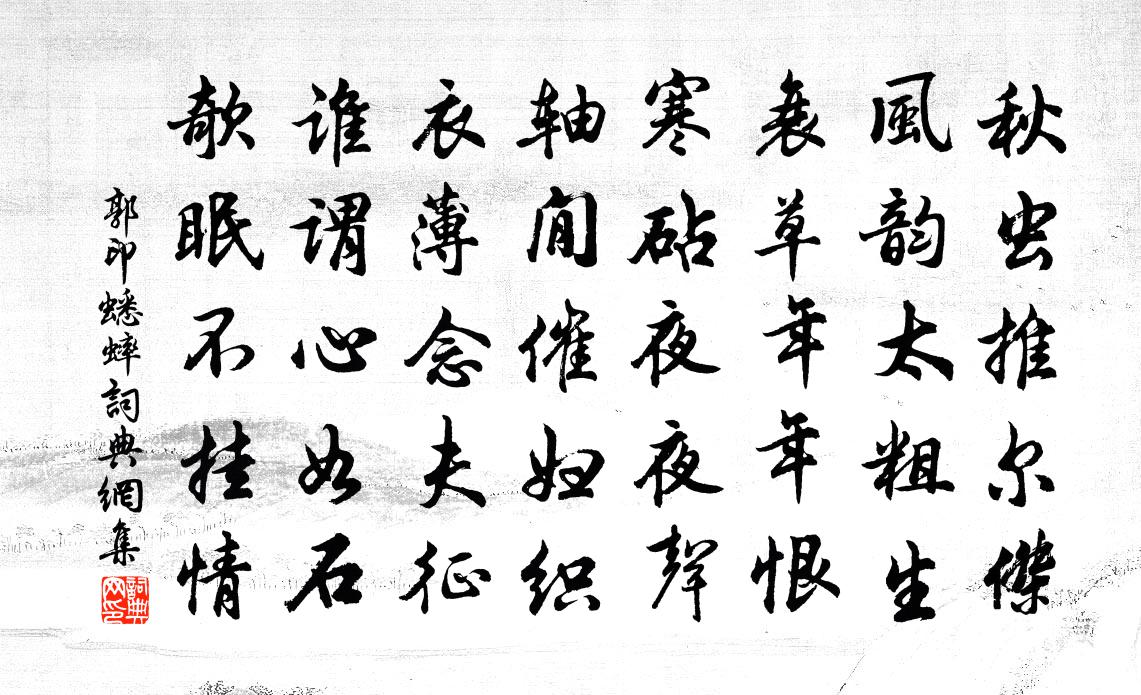 秋虫推尔傑
風韵太粗生
衰草年年恨
寒砧夜夜聲
軸間催妇织
衣薄念夫征
誰謂心如石
欹眠不挂情
郭印蟋蟀詞典網集
詞典网印